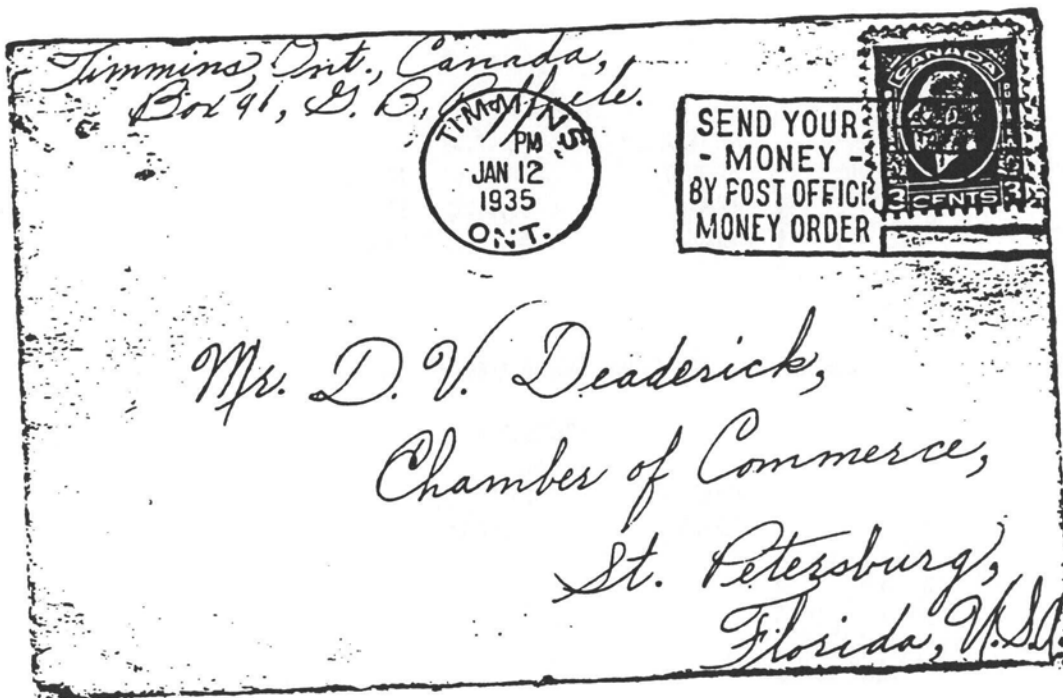 Timmins, Ont., Canada,
Box 91, G. B.
TIMMINS,
PM
JAN 12
1935
ONT.
SEND YOUR
- MONEY -
BY POST OFFICE
MONEY ORDER
CANADA
3 CENTS 3
Mr. D. V. Deaderick,
Chamber of Commerce,
St. Petersburg,
Florida, U.S.A.